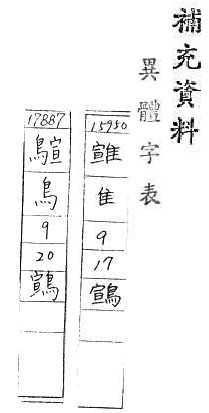 補充資料
異體字表
15950
隹
9
17
17887
鳥
9
20